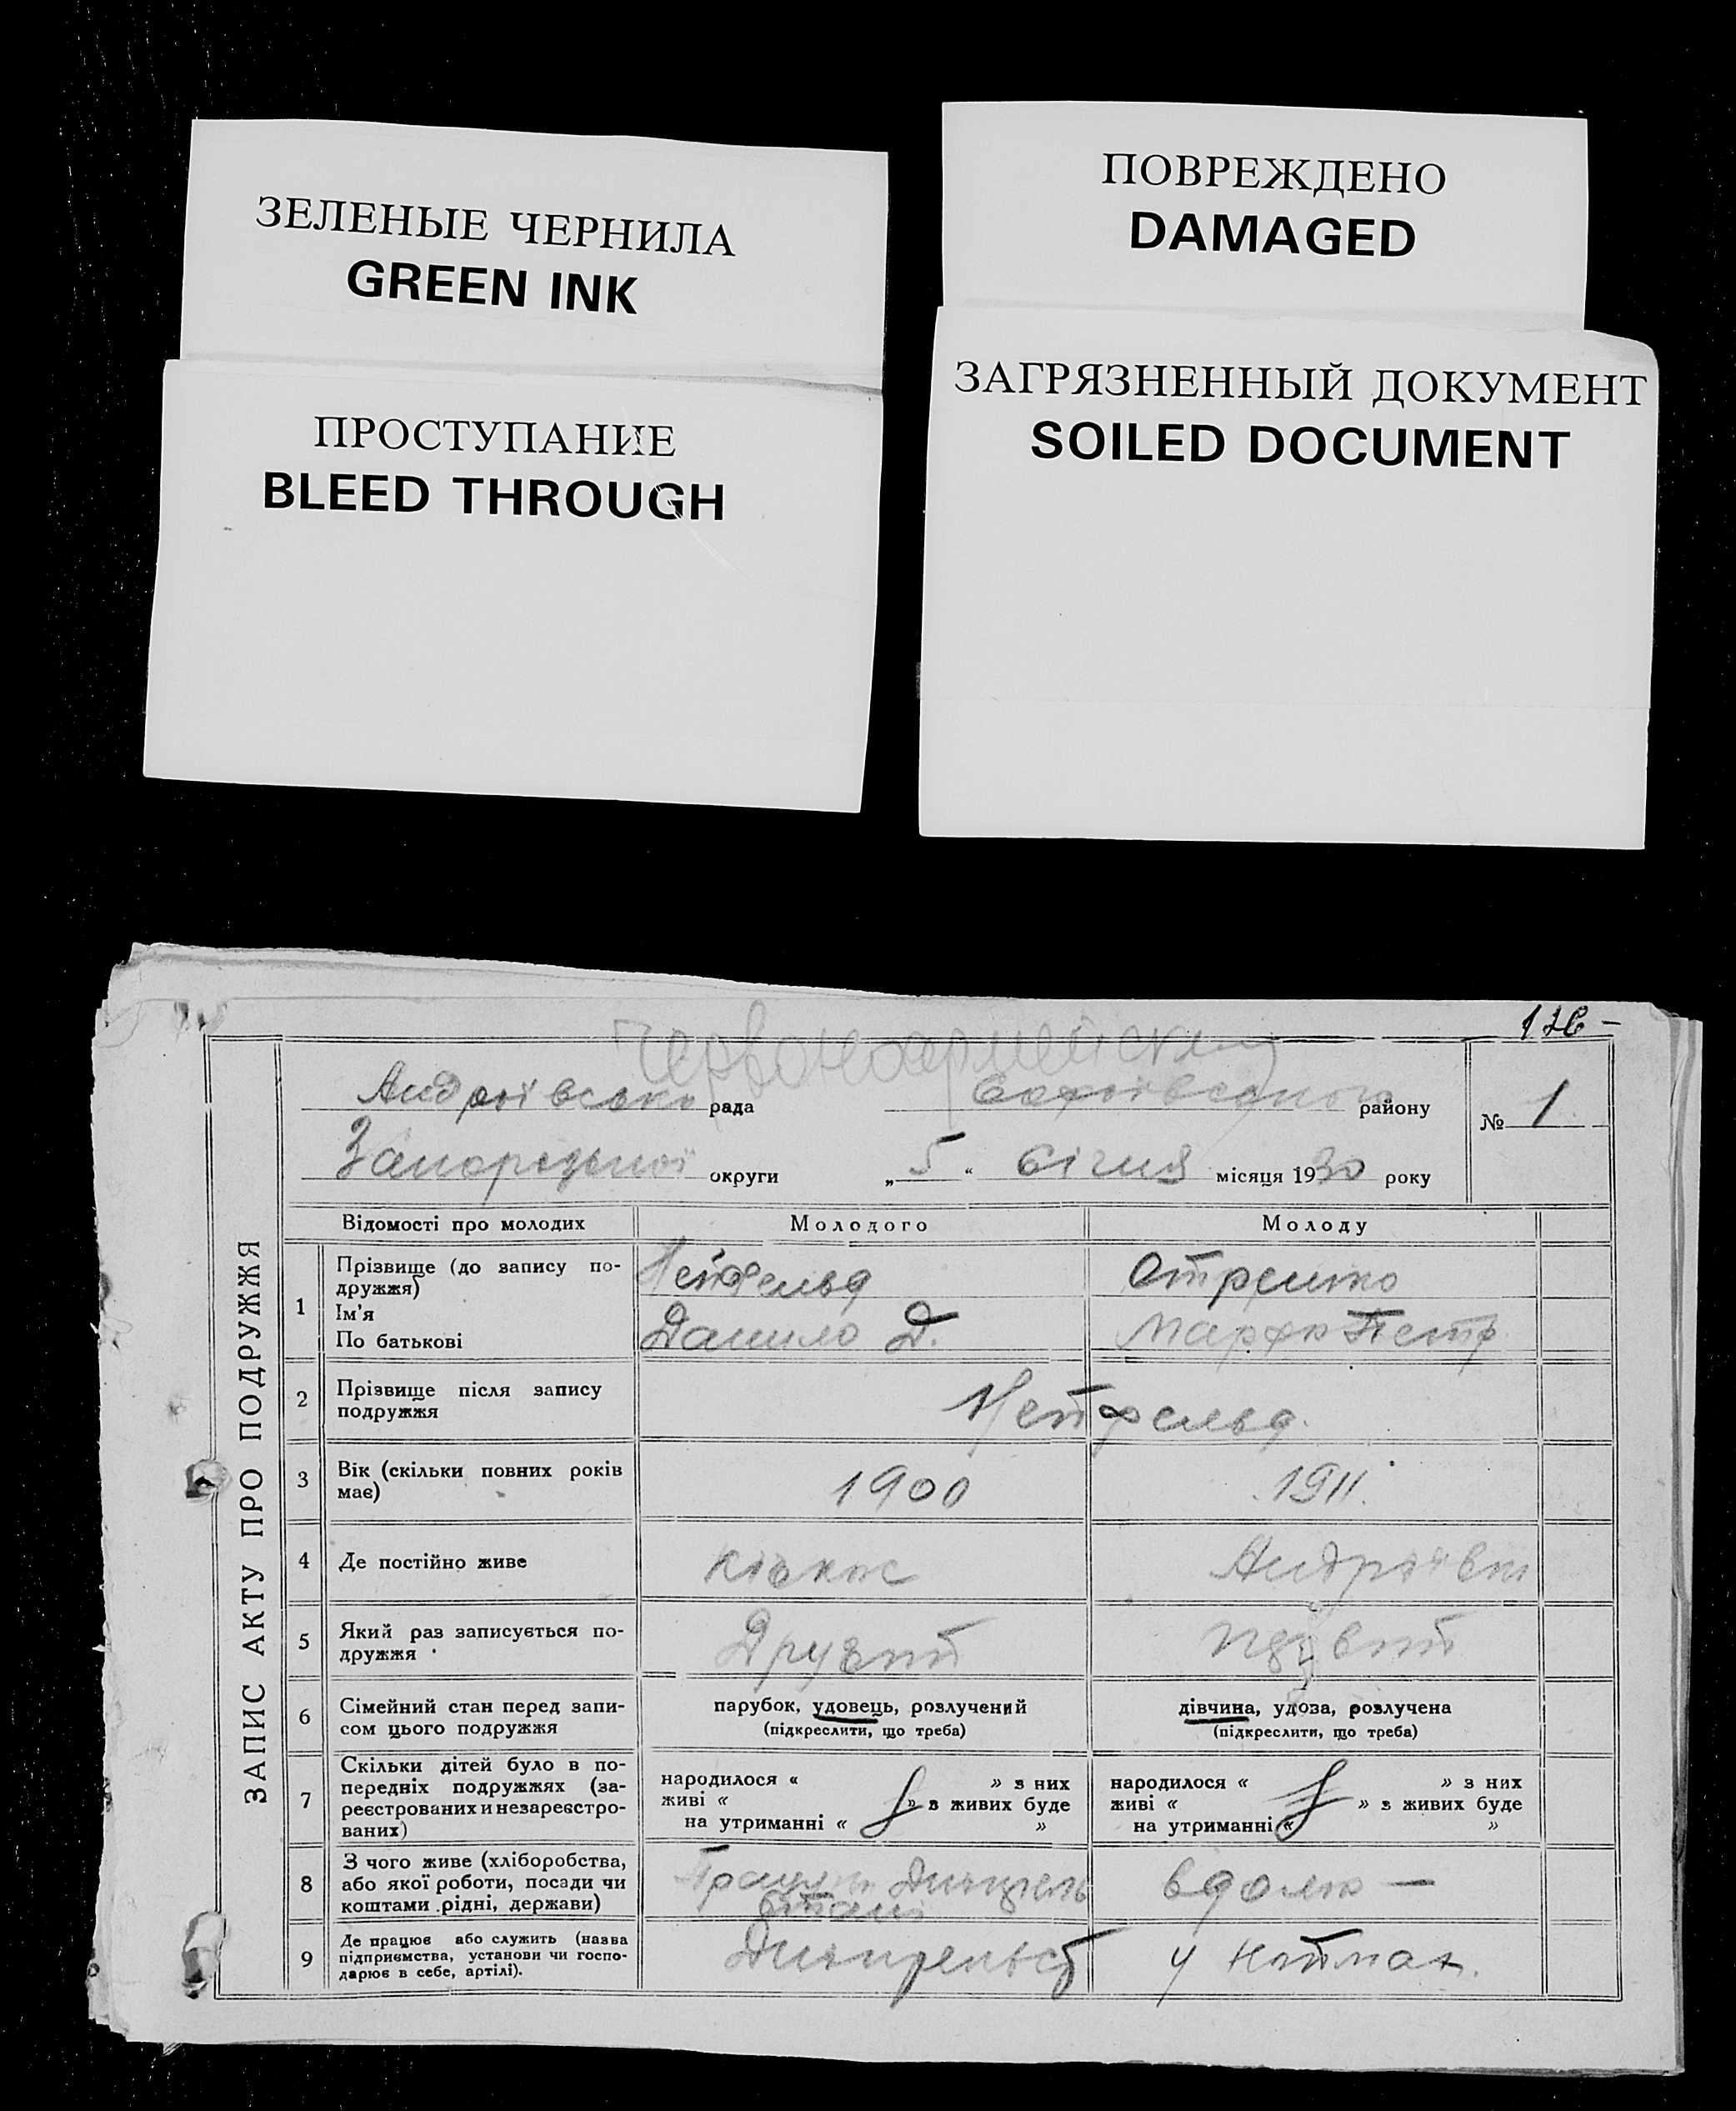 ЗЕЛЕНЫЕ ЧЕРНИЛА
GREEN INK
ПРОСТУПАНИЕ
BLEED THROUGH
ПОВРЕЖДЕНО
DAMAGED
ЗАГРЯЗНЕННЫЙ ДОКУМЕНТ
SOILED DOCUMENT
Червоноармейский
ЗАПИС АКТУ ПРО ПОДРУЖЖЯ
Андріївська рада Софіївського району № 1
Запорізької округи „5“ Січня місяця 1930 року
Відомості про молодих Молодого Молоду
1 Прізвище (до запису по-
дружжя)
Ім'я
По батькові
Нейфельд
Данило Д.
Отрешко
Марфа Петр
2 Прізвище після запису
подружжя
Нейфельд.
3 Вік (скільки повних років
має)
1900 1911.
4 Де постійно живе Кічкас Андріївка
5 Який раз записується по-
дружжя
Другий Первий
6 Сімейний стан перед запи-
сом цього подружжя
парубок, удовець, розлучений
(підкреслити, що треба)
дівчина, удова, розлучена
(підкреслити, що треба)
7 Скільки дітей було в по-
передніх подружжях (за-
реєстрованих и незареєстро-
ваних)
народилося « » з них
живі « » з живих буде
на утриманні « »
народилося « » з них
живі « » з живих буде
на утриманні « »
8 З чого живе (хліборобства,
або якої роботи, посади чи
коштами рідні, держави)
вдома —
9 Де працює або служить (назва
підприємства, установи чи госпо-
дарює в себе, артілі).
Дніпрельст у